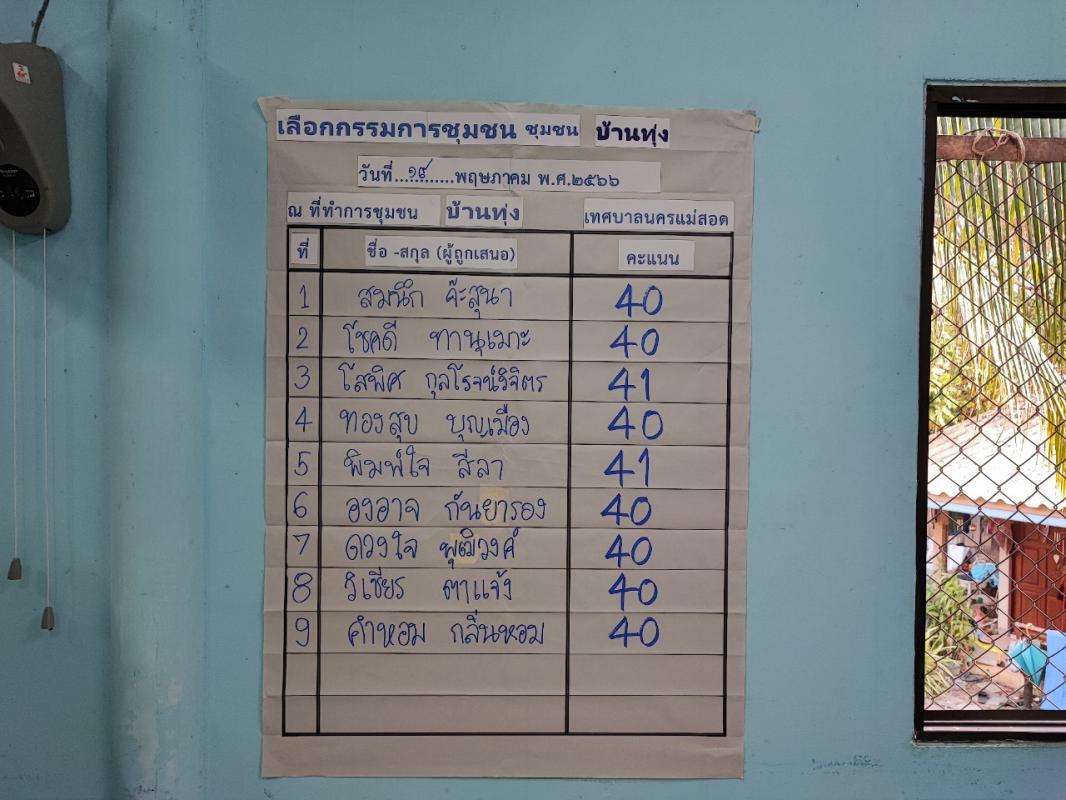 เลือกกรรมการชุมชน ชุมชน บ้านทุ่ง
วันที่....๑๙........พฤษภาคม พ.ศ.๒๕๖๖
ณ ที่ทำการชุมชน บ้านทุ่ง เทศบาลนครแม่สอด
ที่ ชื่อ -สกุล (ผู้ถูกเสนอ) คะแนน
1 สมนึก ค๊ะสุนา 40
2 โชคดี ทานุเมาะ 40
3 โสพิศ กุลโรจน์วิจิตร 41
4 ทองสุข บุญเมือง 40
5 พิมพ์ใจ สีลา 41
6 องอาจ กันยารอง 40
7 ดวงใจ พุฒิวงค์ 40
8 วิเชียร ตาแจ้ง 40
9 คำหอม กลิ่นหอม 40